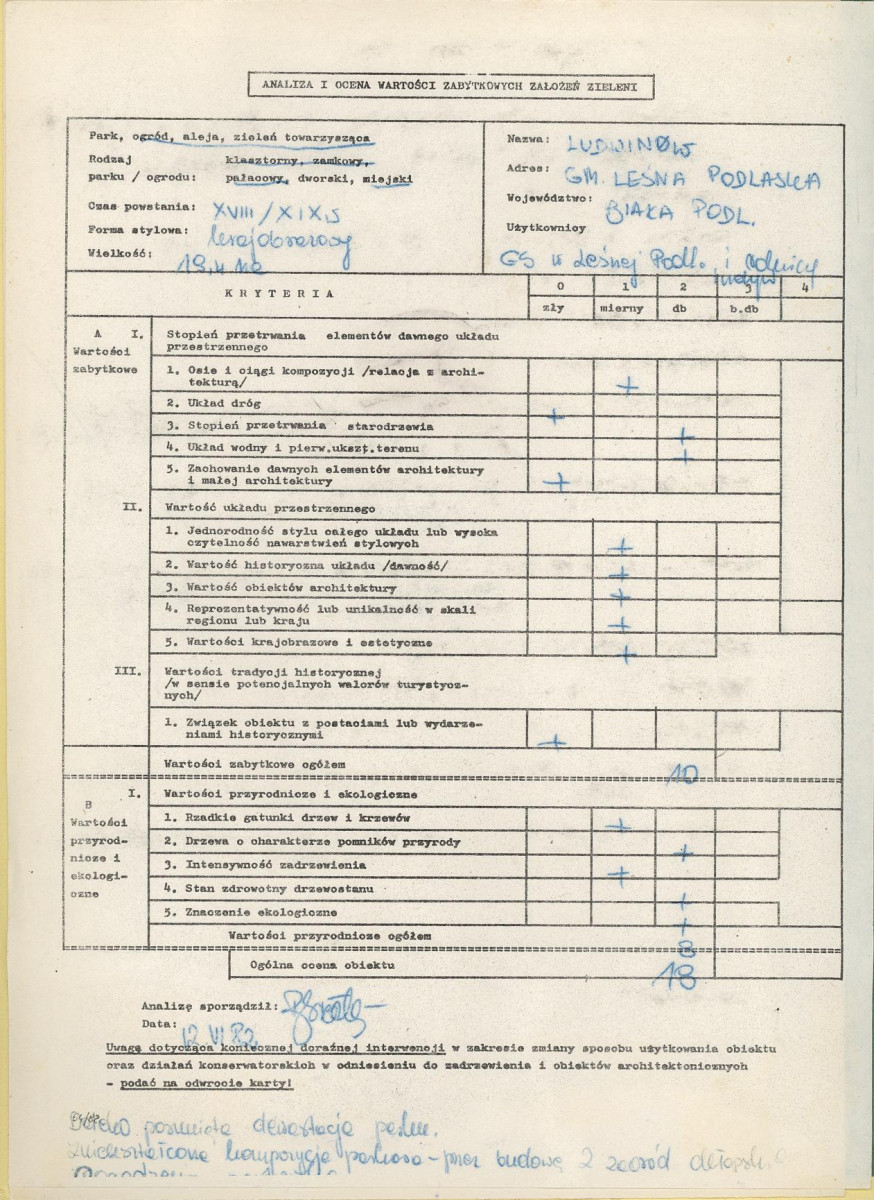 ANALIZA I OCENA WARTOŚCI ZABYTKOWYCH ZAŁOŻEŃ ZIELENI
Park, ogród, aleja, zieleń towarzysząca
Rodzaj klasztorny, zamkowy,
parku / ogrodu: pałacowy, dworski, miejski
Czas powstania: XVIII/XIX s
Forma stylowa: krajobrazowy
Wielkość: 19,4 ha
Nazwa: LUDWINÓW
Adres: GM. LEŚNA PODLASKA
Województwo: BIAŁA PODL.
Użytkownicy
GS w Leśnej Podl. i rolnicy
indyw.
KRYTERIA
0 1 2 3 4
zły mierny db b.db
A I. Stopień przetrwania elementów dawnego układu
przestrzennego
Wartości
zabytkowe
1. Osie i ciągi kompozycji /relacja z archi-
tekturą/ +
2. Układ dróg +
3. Stopień przetrwania starodrzewia +
4. Układ wodny i pierw.ukszt.terenu +
5. Zachowanie dawnych elementów architektury
i małej architektury +
II. Wartość układu przestrzennego
1. Jednorodność stylu całego układu lub wysoka
czytelność nawarstwień stylowych +
2. Wartość historyczna układu /dawność/ +
3. Wartość obiektów architektury +
4. Reprezentatywność lub unikalność w skali
regionu lub kraju +
5. Wartości krajobrazowe i estetyczne +
III. Wartości tradycji historycznej
/w sensie potencjalnych walorów turystycz-
nych/
1. Związek obiektu z postaciami lub wydarze-
niami historycznymi +
Wartości zabytkowe ogółem 10
B I. Wartości przyrodnicze i ekologiczne
Wartości
przyrod-
nicze i
ekologi-
czne
1. Rzadkie gatunki drzew i krzewów +
2. Drzewa o charakterze pomników przyrody +
3. Intensywność zadrzewienia +
4. Stan zdrowotny drzewostanu +
5. Znaczenie ekologiczne +
Wartości przyrodnicze ogółem 8
Ogólna ocena obiektu 18
Analizę sporządził:
Data: 12 VI 82
Uwagę dotycząca koniecznej doraźnej interwencji w zakresie zmiany sposobu użytkowania obiektu
oraz działań konserwatorskich w odniesieniu do zadrzewienia i obiektów architektonicznych
- podać na odwrocie karty!
posunięta dewastacja parku.
Zniekształcona kompozycja parkowa - przez budowę 2 zagród